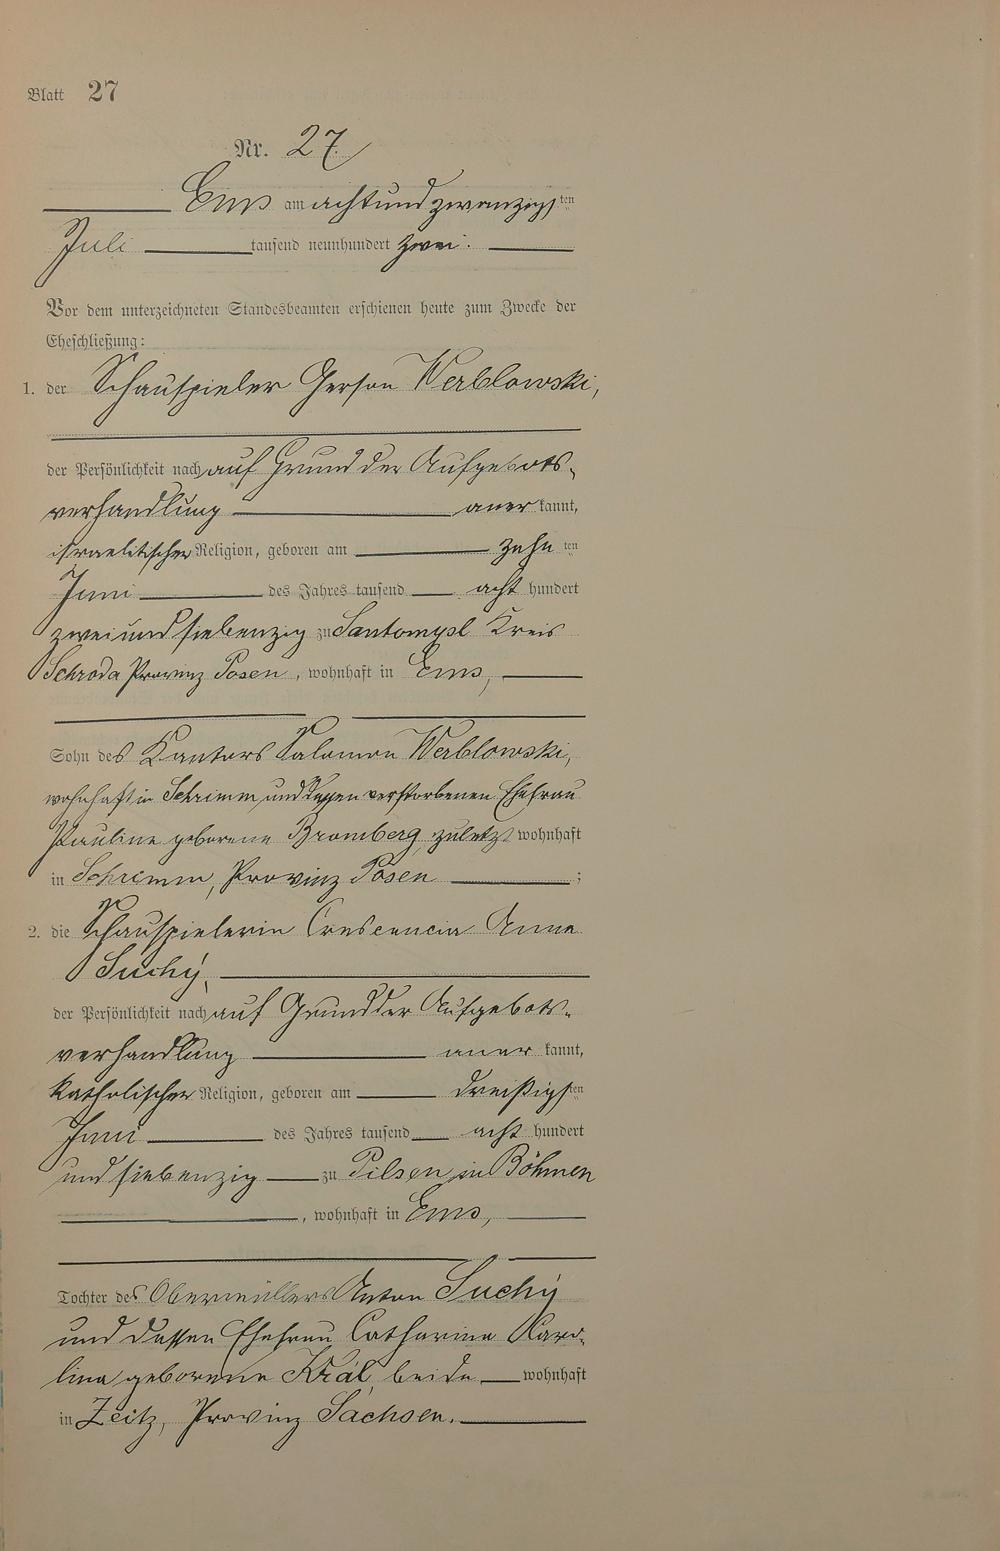 Blatt 27
Nr. 27.
Ems am achtundzwanzigsten
Juli tausend neunhundert zwei.
Vor dem unterzeichneten Standesbeamten erschienen heute zum Zwecke der
Eheschließung:
1. der Schauspieler Gerson Werblowski,
der Persönlichkeit nach auf Grund der Aufgebots-
verhandlung anerkannt,
israelitischer Religion, geboren am zehnten
Juni des Jahres tausend acht hundert
zweiundsiebenzig zu Santomysl Kreis
Schroda Provinz Posen, wohnhaft in Ems,
Sohn des Kantors Salomon Werblowski,
wohnhaft in Schrimm, und dessen verstorbenen Ehefrau
Pauline geborene Bromberg, zuletzt wohnhaft
in Schrimm, Provinz Posen ;
2. die Schauspielerin Crescencia Anna
Suchý,
der Persönlichkeit nach auf Grund der Aufgebots-
verhandlung anerkannt,
katholischer Religion, geboren am dreißigsten
Juni des Jahres tausend acht hundert
und siebenzig zu Pilsen in Böhmen
, wohnhaft in Ems,
Tochter des Obermüllers Anton Suchý
und dessen Ehefrau Catharina Karo-
lina geborene Král, beide wohnhaft
in Zeitz, Provinz Sachsen.